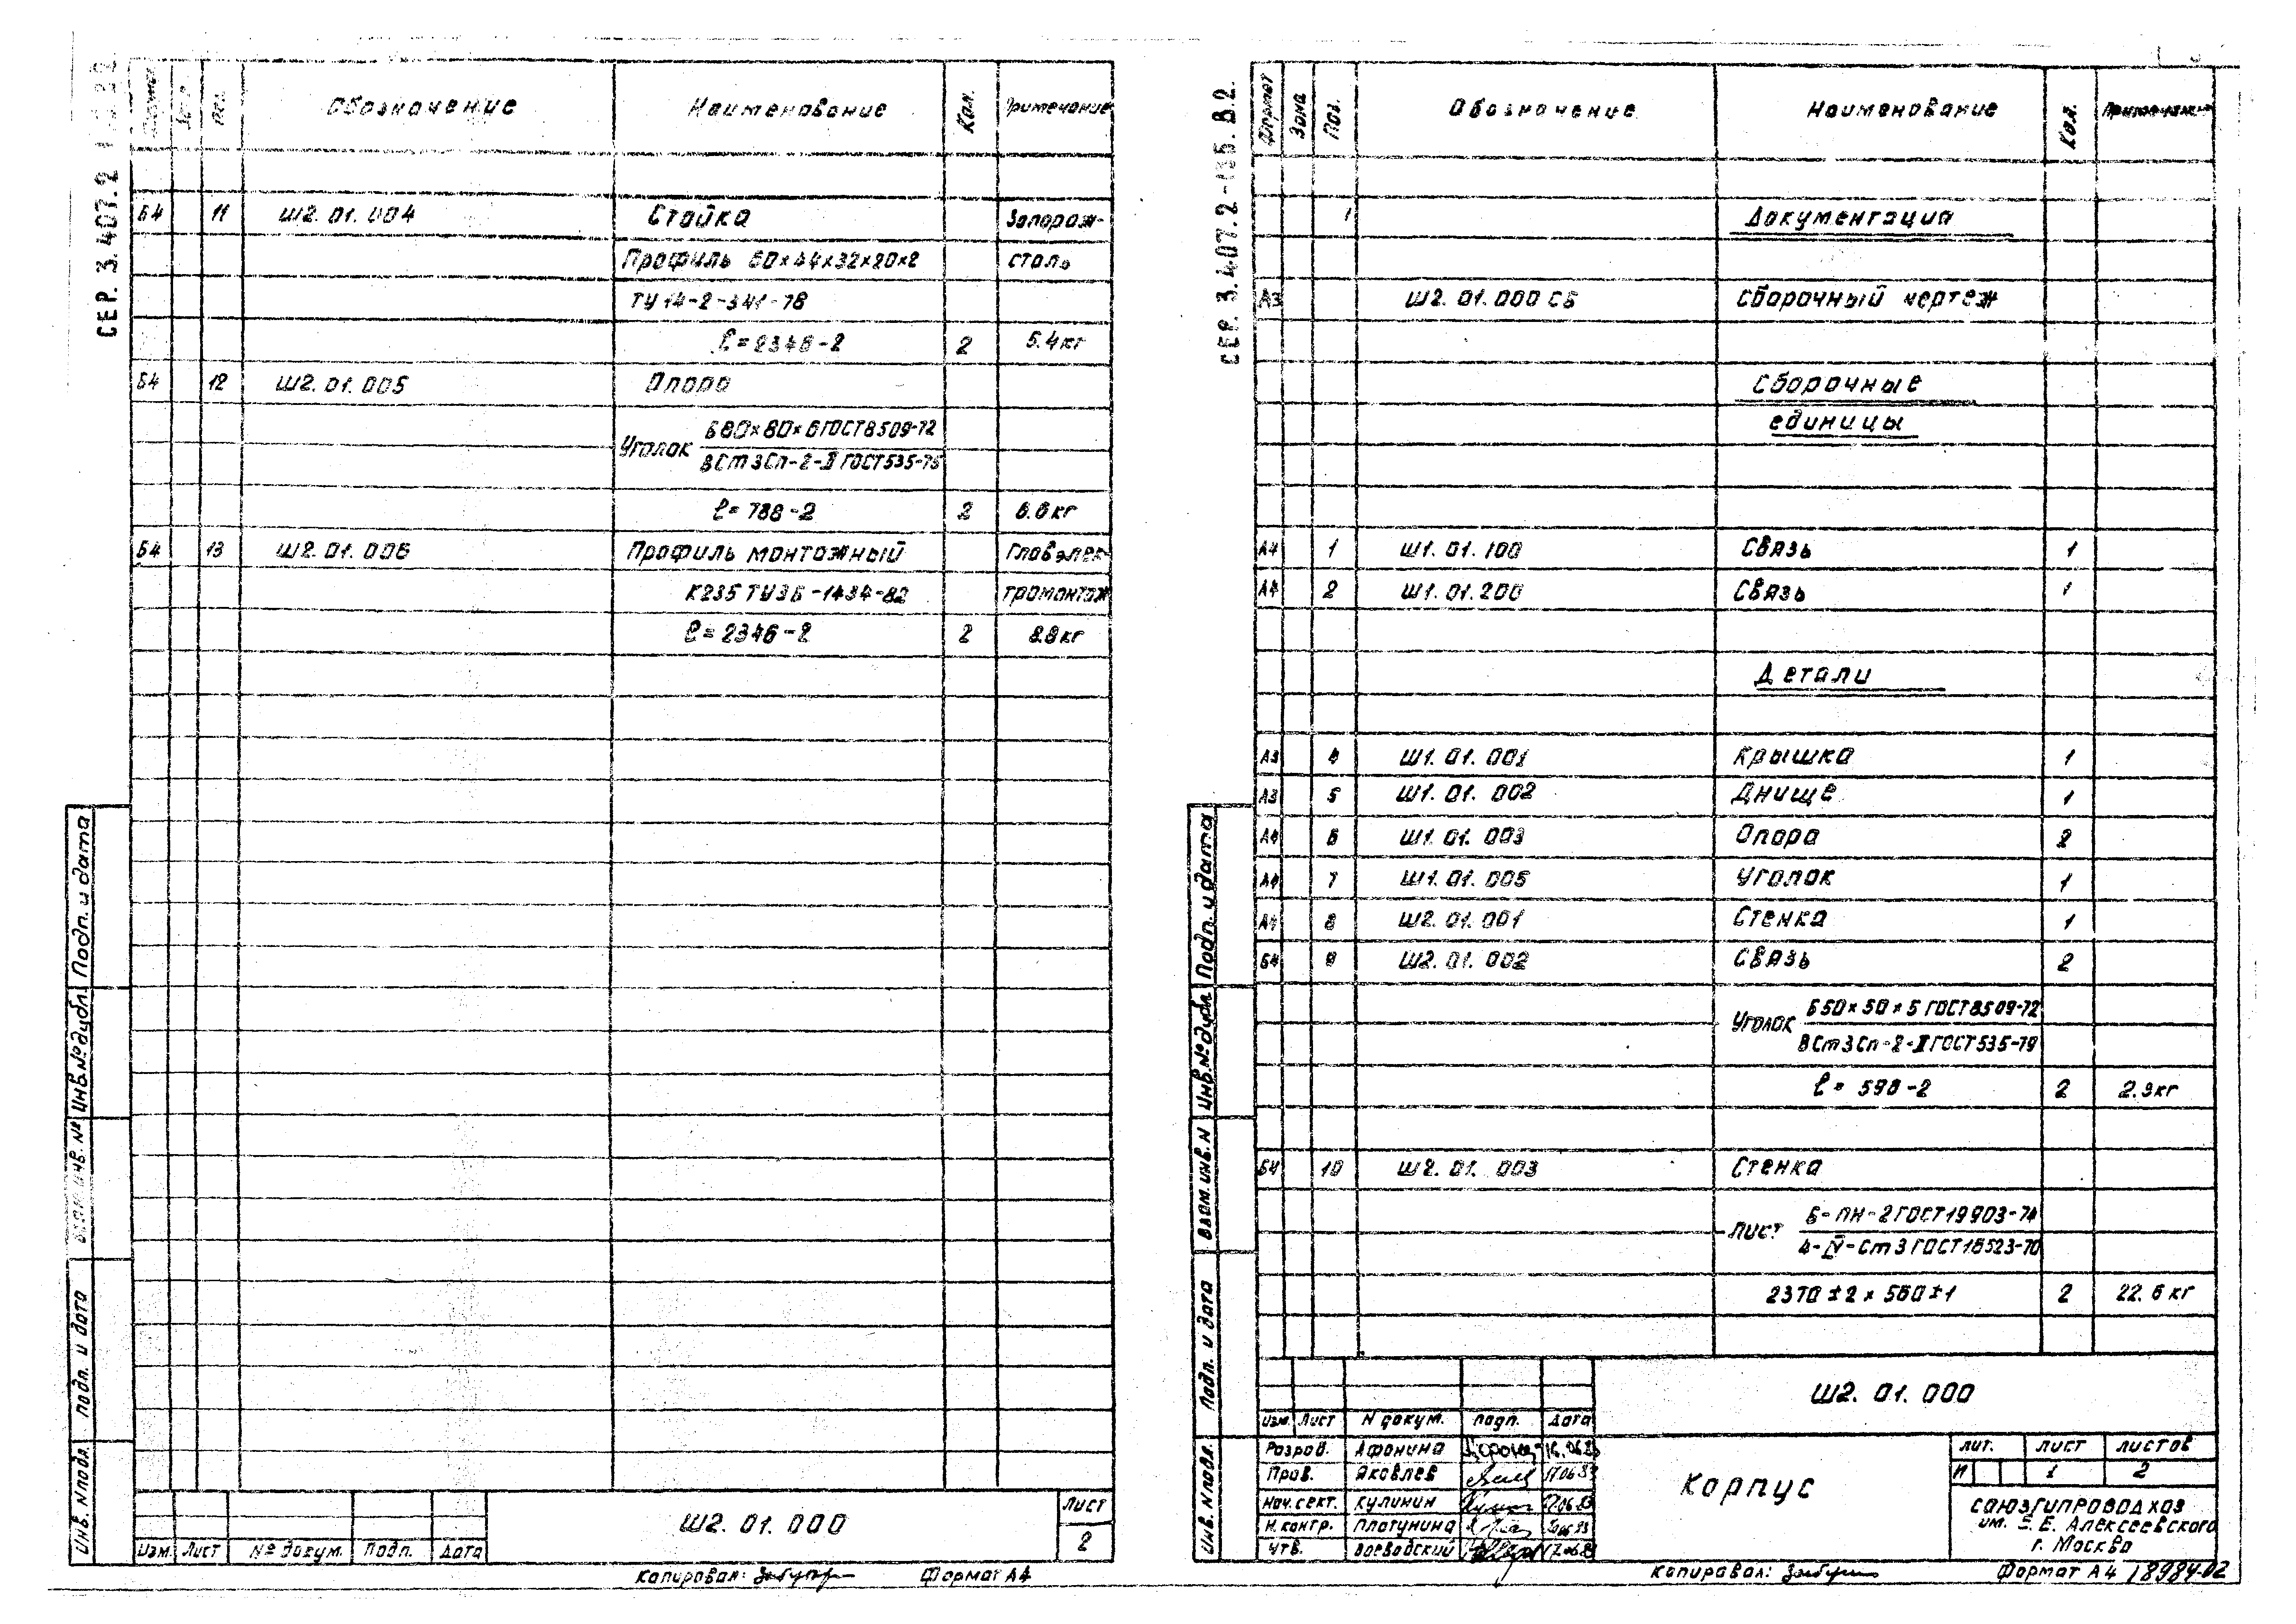 СЕР. 3.407.2
Поз. Обозначение Наименование Кол. Примечание
Б4 11 Ш2.01.004 Стойка Запорож-
Профиль 60×44×32×20×2 сталь
ТУ 14-2-341-78
ℓ=2346-2 2 5.4кг
Б4 12 Ш2.01.005 Опора
Уголок Б80×80×6ГОСТ8509-72
ВСт3Сп-2-II ГОСТ535-79
ℓ=788-2 2 6.6кг
Б4 13 Ш2.01.006 Профиль монтажный Главэлек-
К235 ТУ36-1434-82 тромонтаж
ℓ=2346-2 2 8.8кг
Подп. и дата
Инв.№дубл.
Подп. и дата
Инв. Nподл.
Изм. Лист № докум. Подп. Дата
Ш2.01.000
Лист
2
Копировал: Формат А4
СЕР. 3.407.2-135.В.2.
Формат Зона Поз. Обозначение Наименование Кол. Примечание
Документация
А3 Ш2.01.000 СБ Сборочный чертеж
Сборочные
единицы
А4 1 Ш1.01.100 Связь 1
А4 2 Ш1.01.200 Связь 1
Детали
А3 4 Ш1.01.001 Крышка 1
А3 5 Ш1.01.002 Днище 1
А4 6 Ш1.01.003 Опора 2
А4 7 Ш1.01.005 Уголок 1
А4 8 Ш2.01.001 Стенка 1
Б4 9 Ш2.01.002 Связь 2
Уголок Б50×50×5 ГОСТ8509-72
ВСт3Сп-2-II ГОСТ535-79
ℓ= 598-2 2 2.3кг
Б4 10 Ш2.01.003 Стенка
Лист Б-ПН-2ГОСТ19903-74
4-IV-Ст3 ГОСТ16523-70
2370±2×560±1 2 22.6 кг
Подп. и дата
Инв.№дубл
Взам.инв.N
Подп. и дата
Инв. Nподл.
Ш2.01.000
Изм. Лист N докум. Подп. Дата
Разраб. Афонина 16.06.83
Пров. Яковлев 17.06.83
Нач.сект. Кулинин 17.06.83
Н.контр. Платунина
Утв. Воеводский 17.06.83
Корпус
Лит. Лист Листов
И 1 2
СОЮЗГИПРОВОДХОЗ
им. Е. Е. Алексеевского
г. Москва
Копировал: Формат А4 18984-02